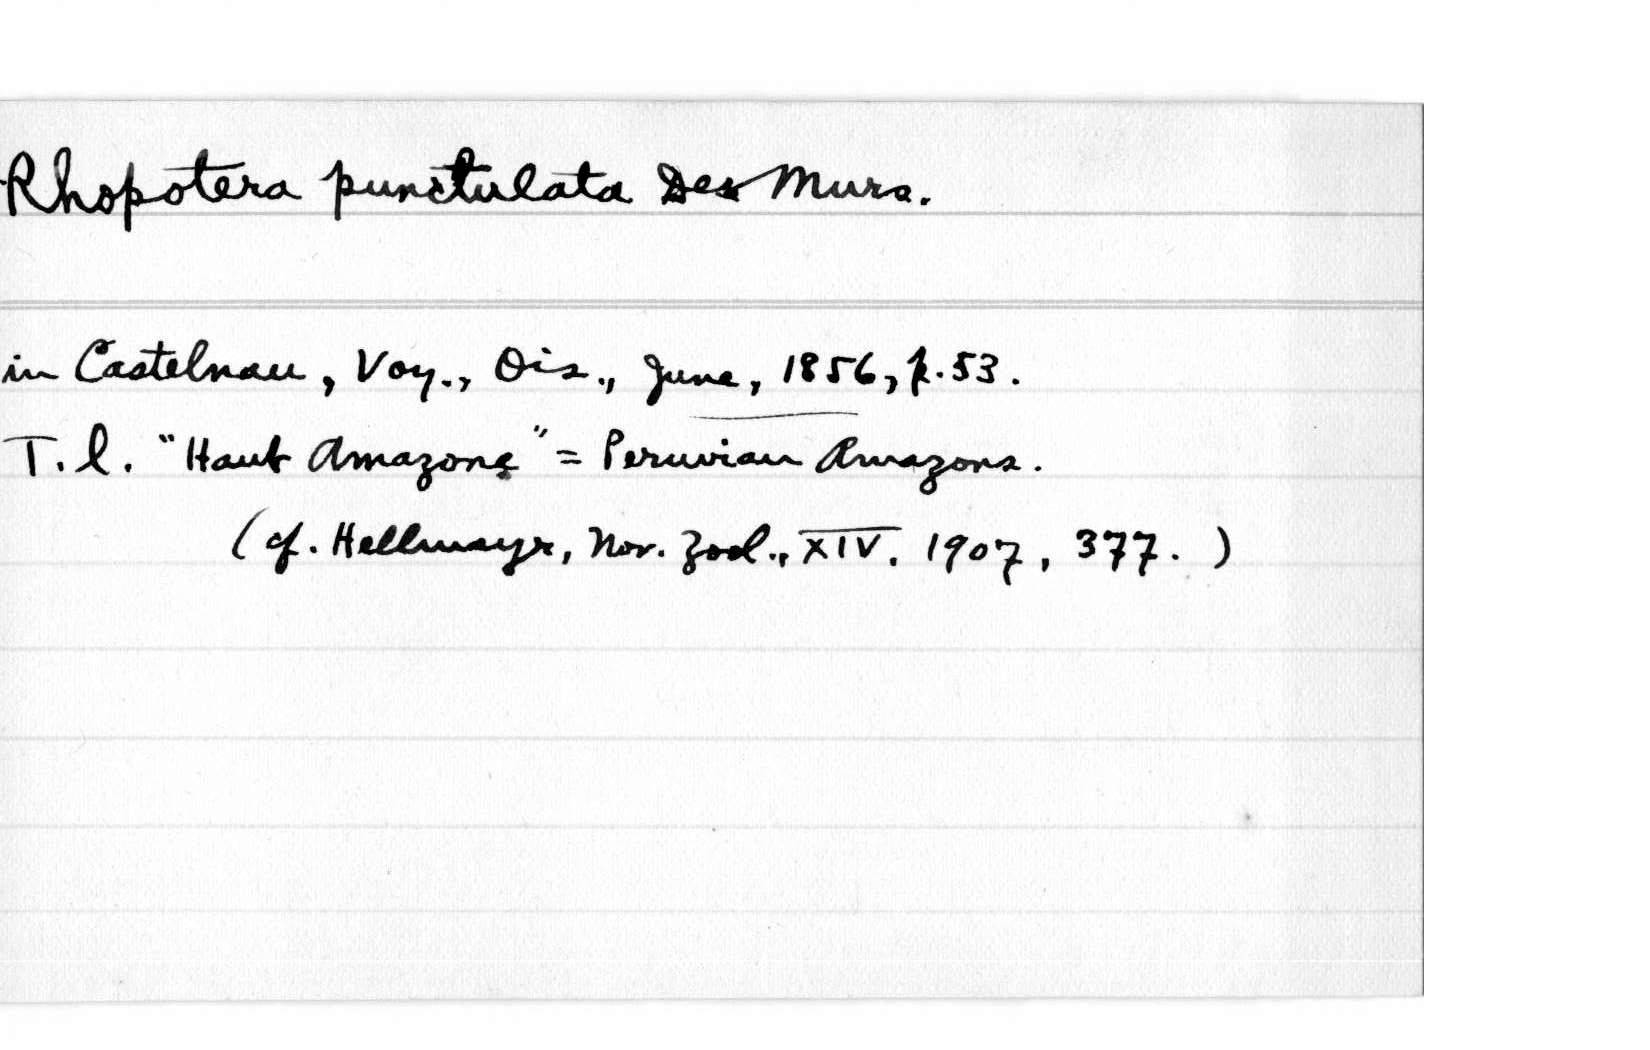 Rhopotera punctulata Des Murs.
in Castelnau, Voy., Ois., June, 1856, p. 53.
T. l. "Haut Amazone" = Peruvian Amazons.
(cf. Hellmayr, Nov. Zool., XIV, 1907, 377.)